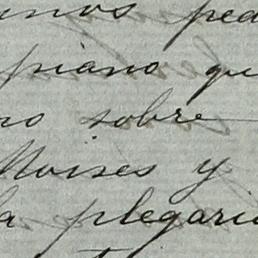 unos ped
piano qu
no sobre
Moises y
la plegari